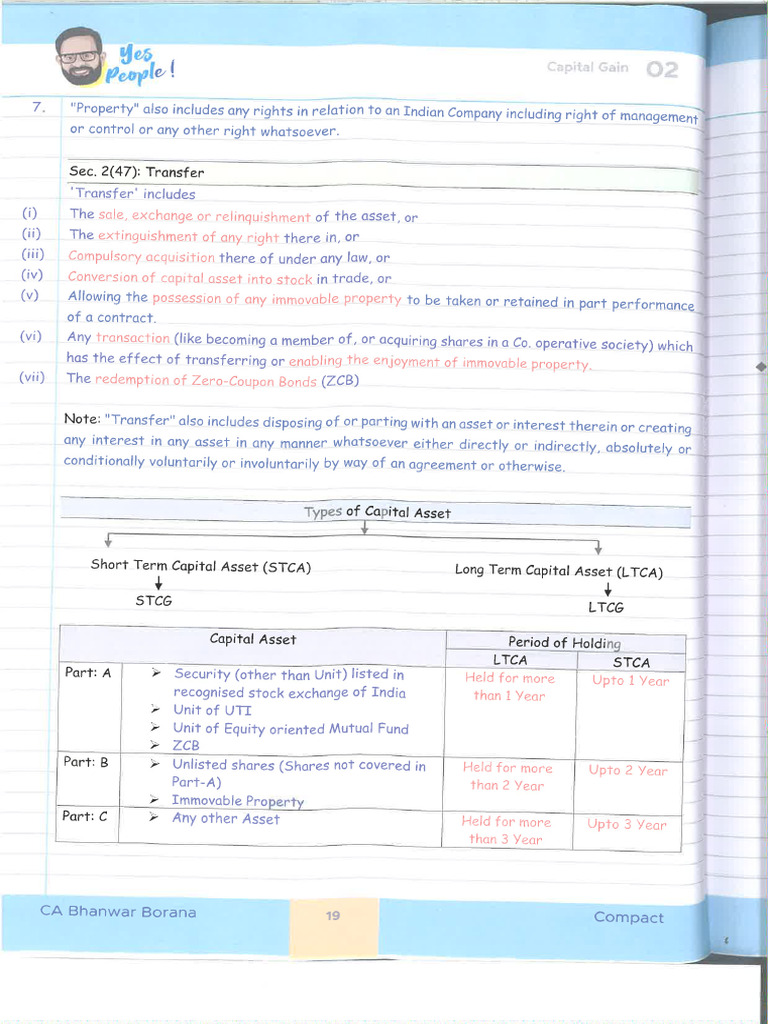 Yes
People!
Capital Gain 02
7. "Property" also includes any rights in relation to an Indian Company including right of management
or control or any other right whatsoever.
Sec. 2(47): Transfer
'Transfer' includes
(i) The sale, exchange or relinquishment of the asset, or
(ii) The extinguishment of any right there in, or
(iii) Compulsory acquisition there of under any law, or
(iv) Conversion of capital asset into stock in trade, or
(v) Allowing the possession of any immovable property to be taken or retained in part performance
of a contract.
(vi) Any transaction (like becoming a member of, or acquiring shares in a Co. operative society) which
has the effect of transferring or enabling the enjoyment of immovable property.
(vii) The redemption of Zero-Coupon Bonds (ZCB)
Note: "Transfer" also includes disposing of or parting with an asset or interest therein or creating
any interest in any asset in any manner whatsoever either directly or indirectly, absolutely or
conditionally voluntarily or involuntarily by way of an agreement or otherwise.
Types of Capital Asset
Short Term Capital Asset (STCA) Long Term Capital Asset (LTCA)
STCG LTCG
Capital Asset Period of Holding
LTCA STCA
Part: A ➢ Security (other than Unit) listed in Held for more Upto 1 Year
recognised stock exchange of India than 1 Year
➢ Unit of UTI
➢ Unit of Equity oriented Mutual Fund
➢ ZCB
Part: B ➢ Unlisted shares (Shares not covered in Held for more Upto 2 Year
Part-A) than 2 Year
➢ Immovable Property
Part: C ➢ Any other Asset Held for more Upto 3 Year
than 3 Year
CA Bhanwar Borana 19 Compact